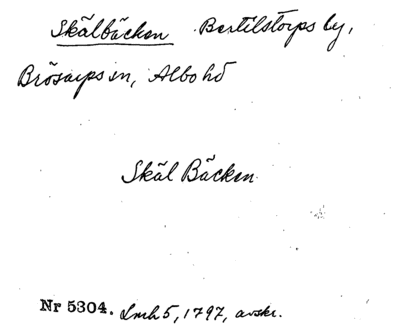 Skälbäcken Bertilstorps by,
Brösarps sn, Albo hd
Skäl Bäcken
Nr 5304. Lmh 5, 1797, avskr.